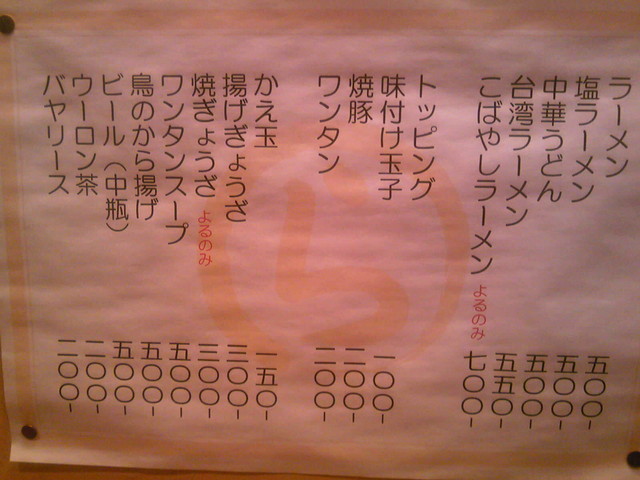 ラーメン 五〇〇-
塩ラーメン 五〇〇-
中華うどん 五〇〇-
台湾ラーメン 五五〇-
こばやしラーメン よるのみ 七〇〇-
トッピング
味付け玉子 一〇〇-
焼豚 二〇〇-
ワンタン 二〇〇-
かえ玉 一五〇-
揚げぎょうざ 三〇〇-
焼ぎょうざ よるのみ 三〇〇-
ワンタンスープ 五〇〇-
鳥のから揚げ 五〇〇-
ビール（中瓶） 五〇〇-
ウーロン茶 二〇〇-
バヤリース 二〇〇-
ら